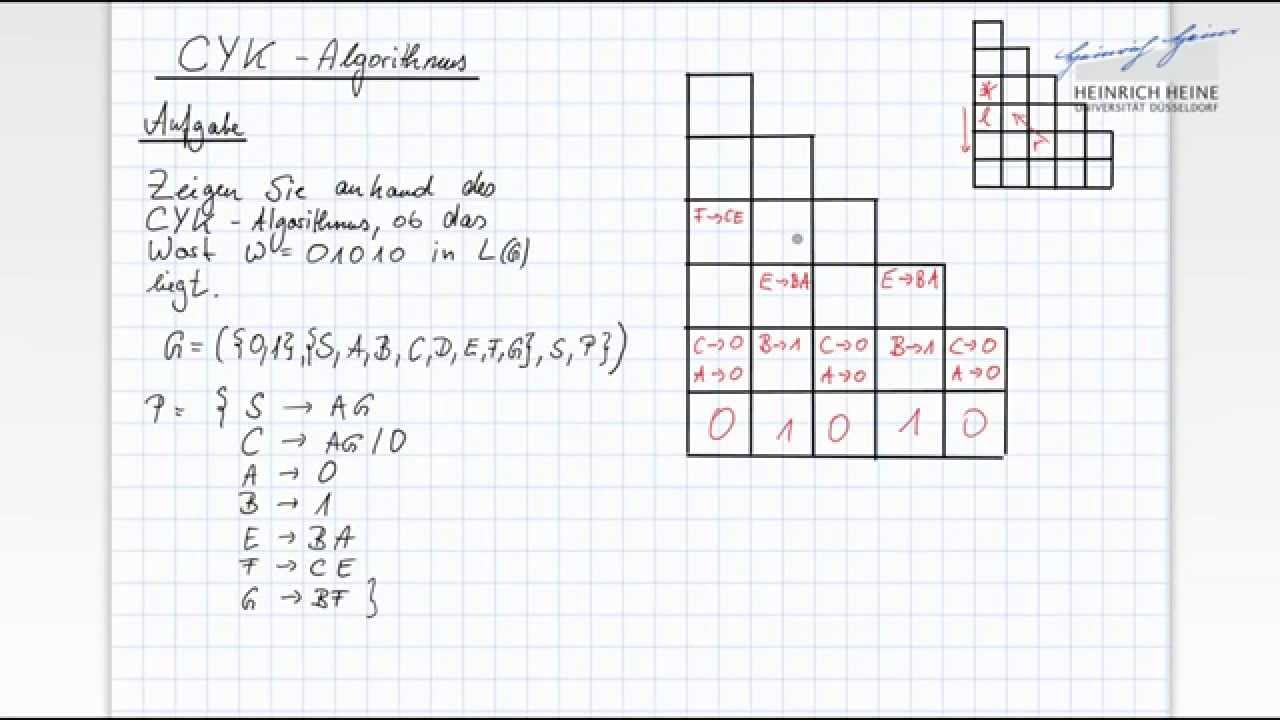 CYK - Algorithmus
Aufgabe
Zeigen Sie anhand des
CYK - Algorithmus, ob das
Wort w = 01010 in L(G)
liegt.
G = ({0,1},{S, A, B, C, D, E, F, G}, S, P})
P = { S → AG
C → AG / 0
A → 0
B → 1
E → BA
F → CE
G → BF }
F→CE
E→BA E→BA
C→0 B→1 C→0 B→1 C→0
A→0 A→0 A→0
0 1 0 1 0
*
l
r
Heinrich Heine
HEINRICH HEINE
UNIVERSITÄT DÜSSELDORF